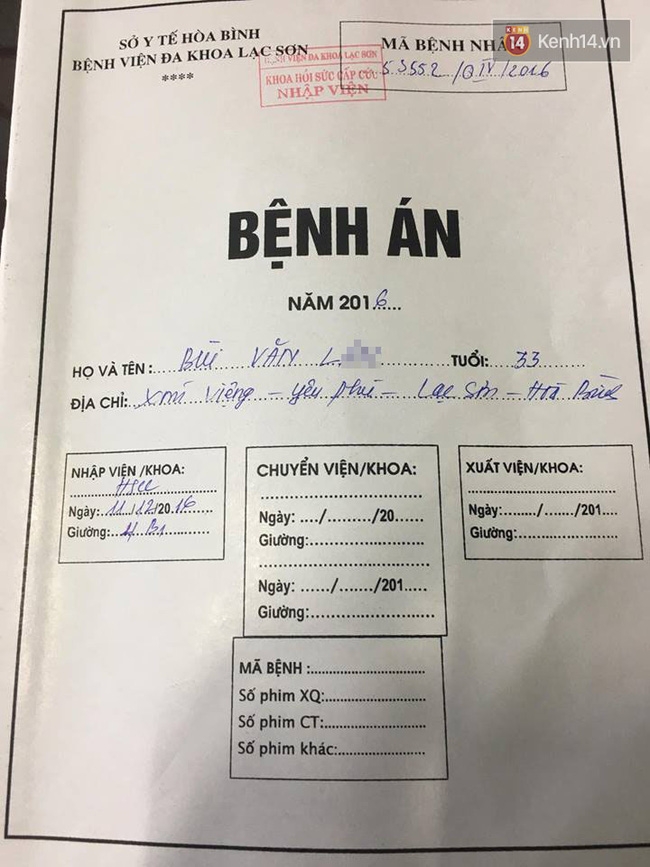 KENH 14
Kenh14.vn
SỞ Y TẾ HÒA BÌNH
BỆNH VIỆN ĐA KHOA LẠC SƠN
****
BỆNH VIỆN ĐA KHOA LẠC SƠN
KHOA HỒI SỨC CẤP CỨU
NHẬP VIỆN
MÃ BỆNH NHÂ
53552 /Q IV/2016
BỆNH ÁN
NĂM 2016
HỌ VÀ TÊN: BÙI VĂN L TUỔI: 33
ĐỊA CHỈ: Yên Phú - Lạc Sơn - Hoà Bình
NHẬP VIỆN /KHOA:
HSCC
Ngày: 11/12/2016
Giường:
CHUYỂN VIỆN/KHOA:
Ngày: ..../......../20.....
Giường:
Ngày: ....../......./201.....
Giường:
XUẤT VIỆN/KHOA:
Ngày:......./....../201....
Giường:
MÃ BỆNH :
Số phim XQ:
Số phim CT:
Số phim khác: